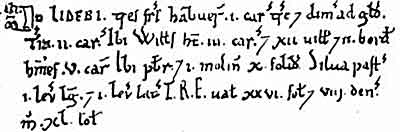 LIDEBI. tres fr̃s habueɼ̃. i. car̃ tr̃e 7 dim̃ ad gl̃d.
Tr̃a .ii. car̃. Ibi Will̃s hт̃. iii. car̃. 7 xii uilł 7 ii. bord̃
hñtes .v. car̃. Ibi pb̃r. 7 i. molin̄ x. solid̃. Silua past̃
i. leu̅ lg̃. 7 i. leu̅ lat̃. T.R.E. uał xxvi. sol̃ 7 viij. den̄.
m̃ xl. sol̃